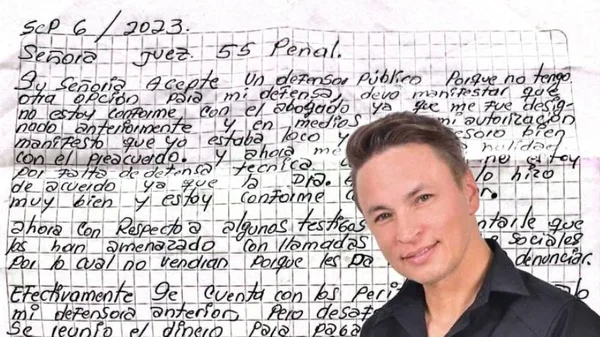 Sep 6/2023.
Señora Juez. 55 Penal.
Su Señoria Acepte Un defensor Público Porque no tengo
otra opción Para mi defensa, devo manifestar que
no estoy conforme con el abogado ya que me fue desig-
nado anteriormente y en medios mi autorización
manifesto que yo estaba loco y esoro bien
con el preacuado. y ahora me nulidad
Por Falta de defensa tecnica no estoy
de acuerdo ya que la Dra. lo hizo
muy bien y estoy conforme
ahora con Respecto a algunos testigos ntarle que
los han amenazado con llamadas sociales
Por lo cual no vendrian Porque les Da denunciar.
Efectivamente Se cuenta con los Peri ab
mi defensora anterior. Pero desaf
Se reunio el dinero Para Paga